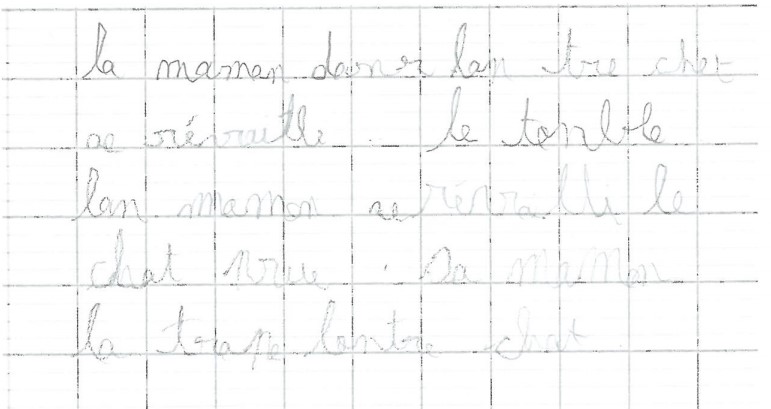 la maman doner lan tre chat
se réveille . le tonbe
lan maman se révalli le
chat true . Sa maman
la trape lantre chat